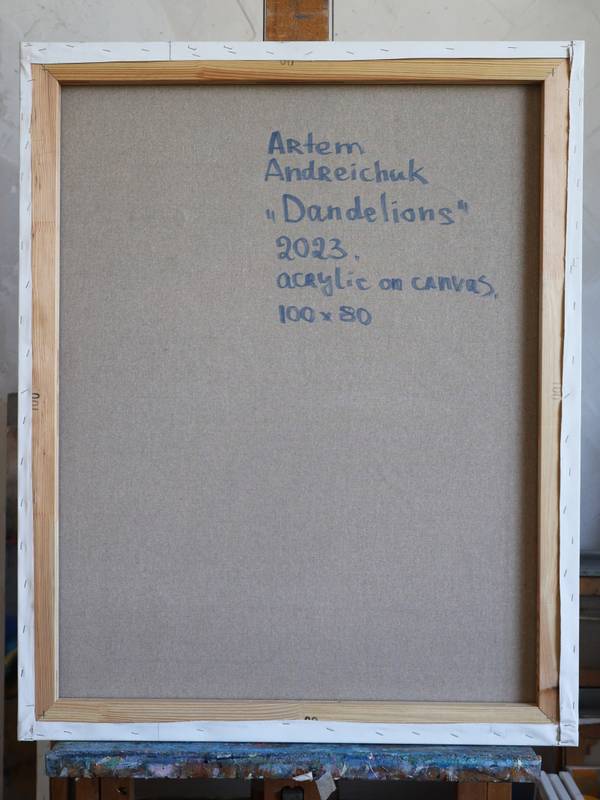 80
Artem
Andreichuk
„Dandelions"
2023.
acrylic on canvas,
100 x 80
100
100
80